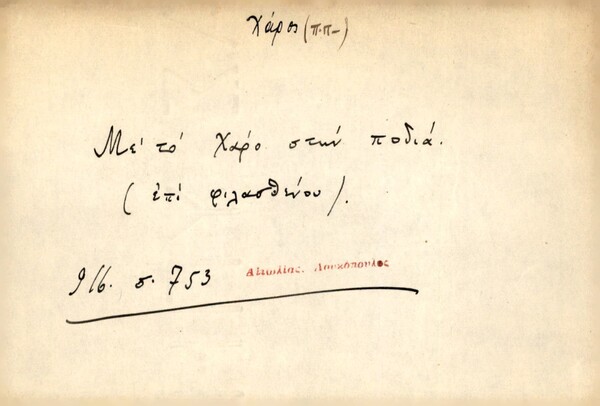 Χάρος (π.π-)
Μέ τό Χάρο στήν ποδιά.
(ἐπί φιλασθένου).
916. σ. 753
Αἰτωλίας. Λουκόπουλος